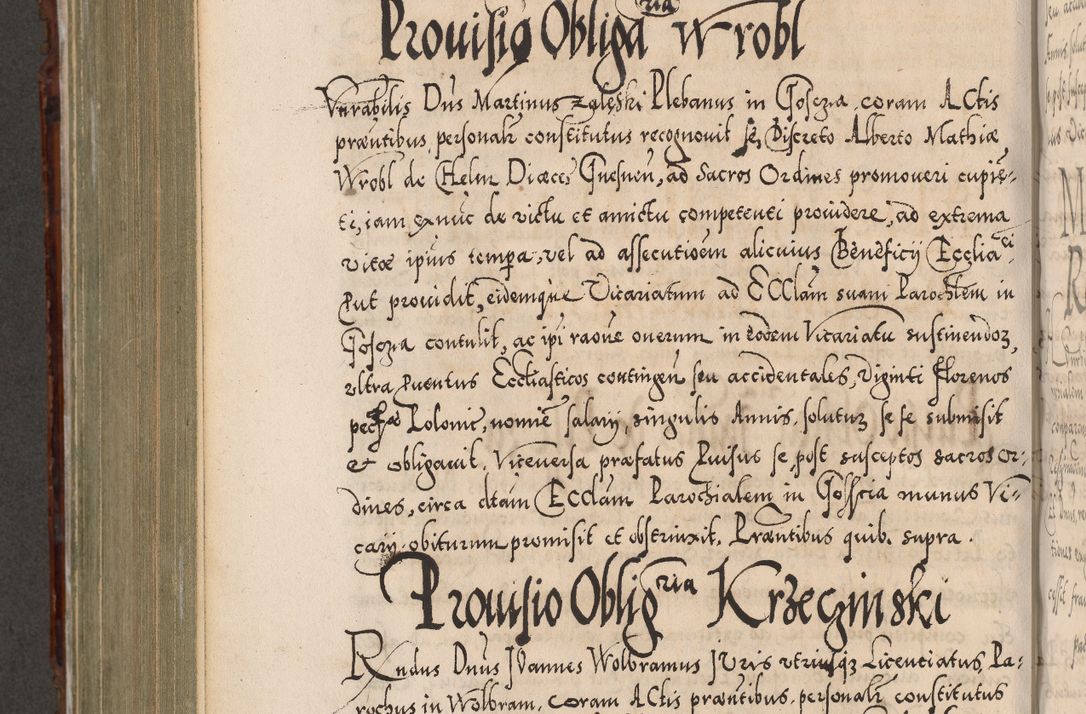 Prouisio Obliga ria Wrobl
Vnrabilis Dns Martinus Zaleski Plebanus in Goscza, coram Actis
præntibus, personalr constitutus recognouit se, Discreto Alberto Mathiæ
Wrobl de Chelm Diœces Gnesnen, ad Sacros Ordines promoueri cupiē-
ti, iam exnūc de victu et amictu competenti prouidere, ad extrema
vitæ ipius tempa, vel ad assecutioēm alicuius Beneficij Ecclia ci
put prouidit, eidemque Vicariatum ad ECClām suam Parochlem in
Goscza contulit, ac ipi raoūe onerum in eodem Vicariatu sustinendoȝ,
vltra puentus Eccliasticos contingen̄ seu accidentales, Viginti florenos
Polonic, nomiē salarij, singulis Annis, soluturȝ se se submisit
et obligauit. Viceuersa præfatus Puisus se, post susceptos sacros or-
dines, circa dtām ECClām Parochialem in Gosscia munus Vi-
carij obiturum promisit et obstrinxit. Præntibus quib. supra.
Prouisio Oblig ria Krzeczinski
Rndus Dnus Joannes Wolbramus Juris vtriusqȝ Licentiatus, Pa-
rochus in Wolbram, coram Actis præntibus, personalr constitutus